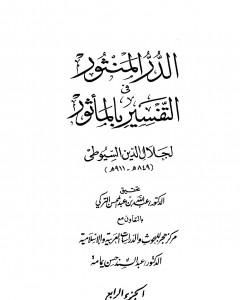 الدر المنثور
في
التفسير بالمأثور
لجلال الدين السيوطي
(٨٤٩هـ - ٩١١هـ)
تحقيق
الدكتور عبد الله بن عبد المحسن التركي
بالتعاون مع
مركز هجر للبحوث والدراسات العربية والإسلامية
الدكتور عبد السند حسن يمامة
الجزء الرابع